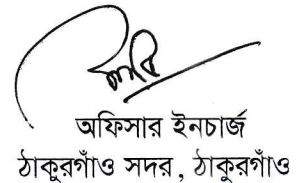 অফিসার ইনচার্জ
ঠাকুরগাঁও সদর, ঠাকুরগাঁও